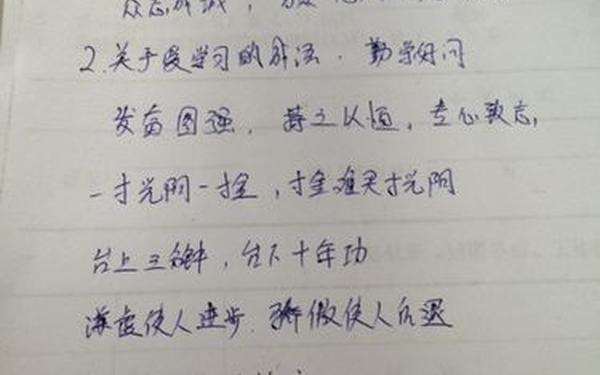 众志成城，
2.关于爱学习的成语. 勤学好问
发奋图强, 持之以恒, 专心致志,
一寸光阴一寸金, 寸金难买寸光阴
台上三分钟, 台下十年功
谦虚使人进步. 骄傲使人后退